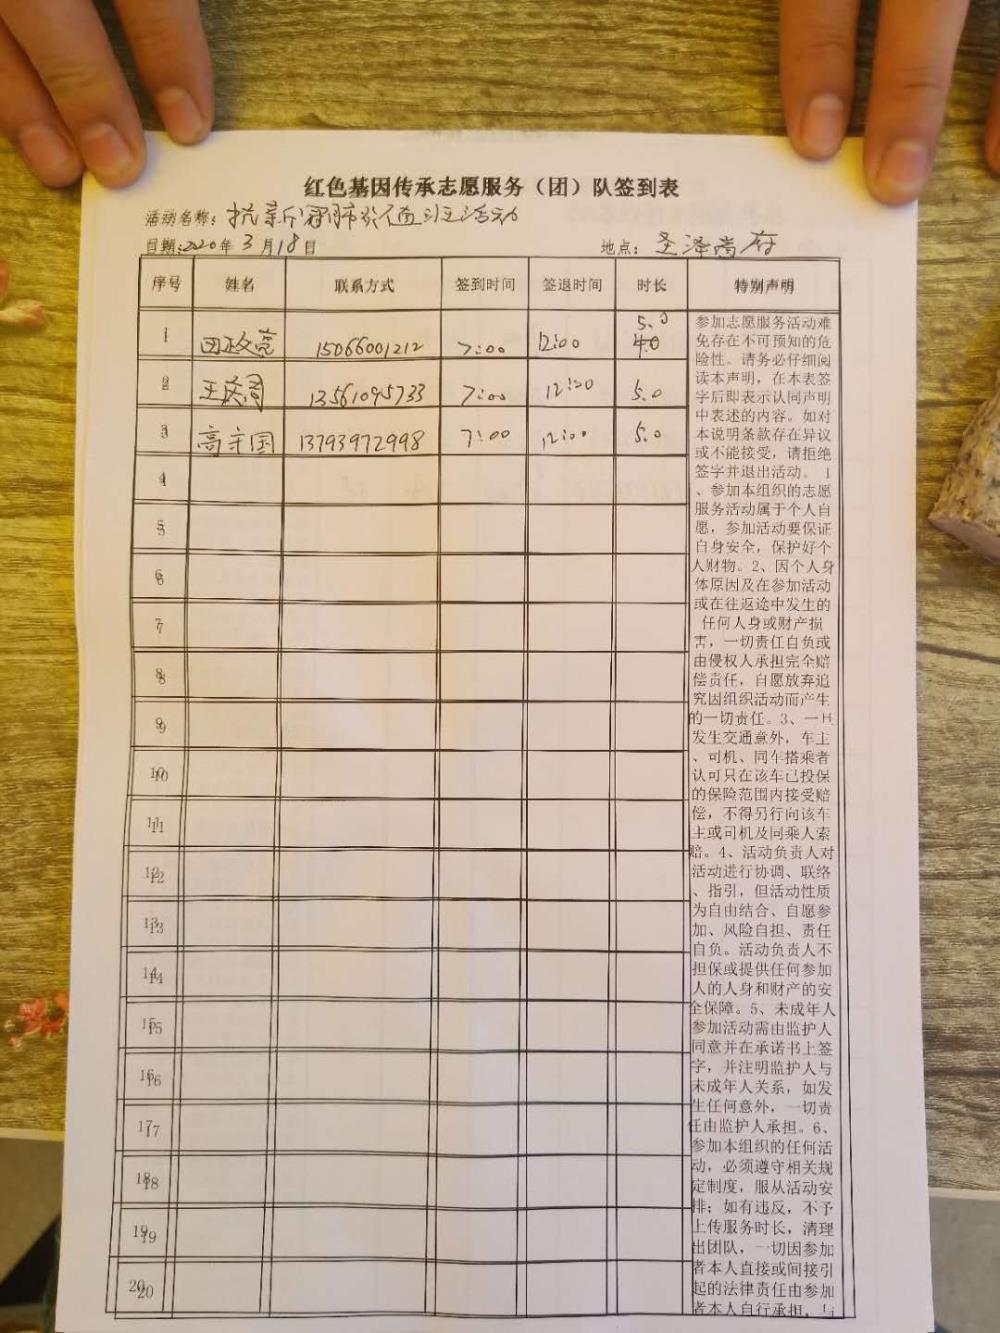 红色基因传承志愿服务（团）队签到表
活动名称：抗新冠肺炎值班活动
日期:2020年3月18日 地点：圣泽尚府
序号 姓名 联系方式 签到时间 签退时间 时长 特别声明
1 田政亮 15066001212 7:00 12:00 5.0 4.0
2 王庆周 13561095733 7:00 12:00 5.0
3 高守国 13793972998 7:00 12:00 5.0
4
5
6
7
8
9
10
11
12
13
14
15
16
17
18
19
20
参加志愿服务活动难
免存在不可预知的危
险性。请务必仔细阅
读本声明，在本表签
字后即表示认同声明
中表述的内容。如对
本说明条款存在异议
或不能接受，请拒绝
签字并退出活动。 1
、参加本组织的志愿
服务活动属于个人自
愿，参加活动要保证
自身安全，保护好个
人财物。2、因个人身
体原因及在参加活动
或在往返途中发生的
任何人身或财产损
害，一切责任自负或
由侵权人承担完全赔
偿责任，自愿放弃追
究因组织活动而产生
的一切责任。3、一旦
发生交通意外，车主
、司机、同车搭乘者
认可只在该车已投保
的保险范围内接受赔
偿，不得另行向该车
主或司机及同乘人索
赔。4、活动负责人对
活动进行协调、联络
、指引，但活动性质
为自由结合、自愿参
加、风险自担、责任
自负。活动负责人不
担保或提供任何参加
人的人身和财产的安
全保障。5、未成年人
参加活动需由监护人
同意并在承诺书上签
字，并注明监护人与
未成年人关系，如发
生任何意外，一切责
任由监护人承担。6、
参加本组织的任何活
动，必须遵守相关规
定制度，服从活动安
排；如有违反，不予
上传服务时长，清理
出团队，一切因参加
者本人直接或间接引
起的法律责任由参加
者本人自行承担，与